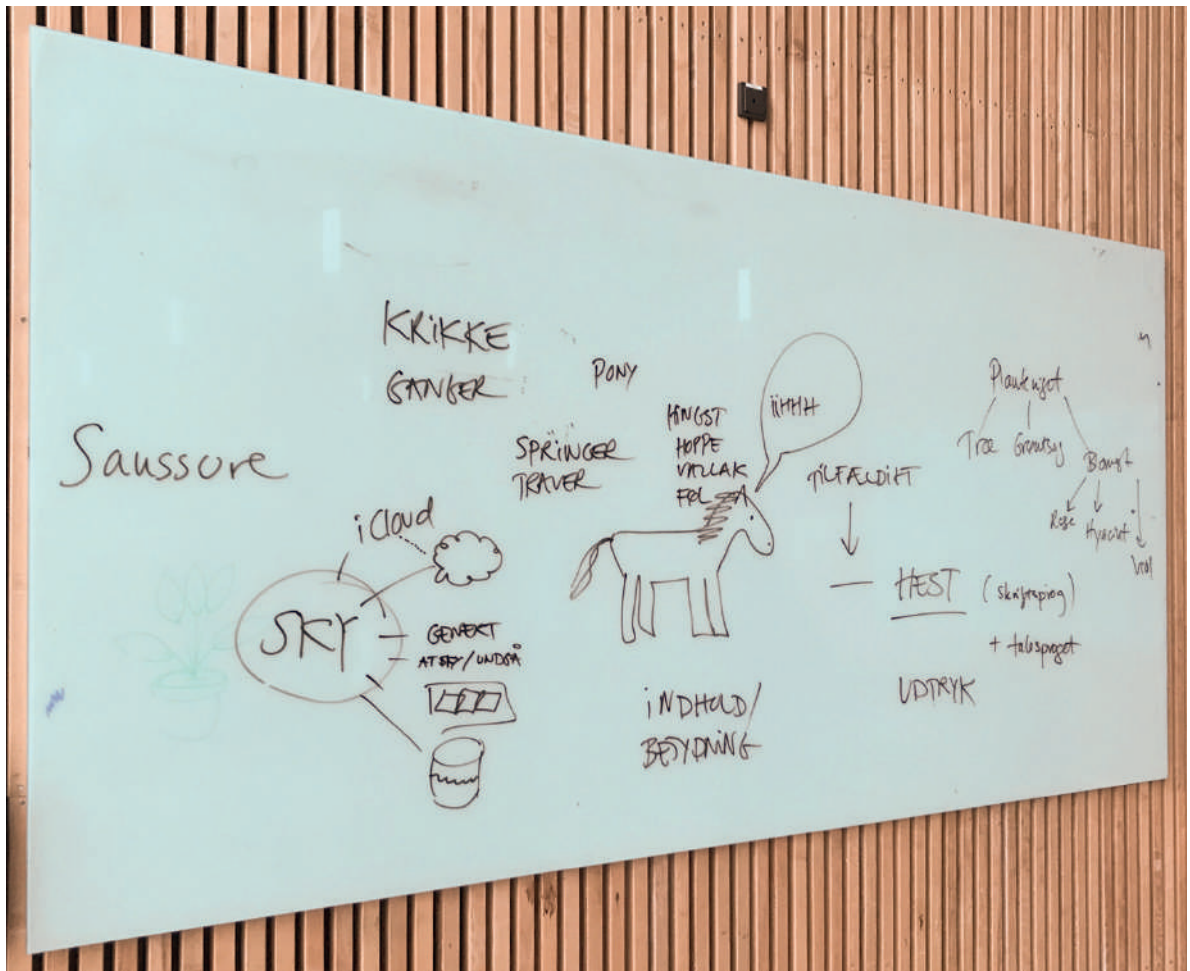 Saussure
KRIKKE
GANGER
PONY
SPRINGER
TRAVER
HINGST
HOPPE
VALLAK
FØL
iiHHH
iCloud
SKY
GENERT
AT SKY/UNDGÅ
TILFÆLDIGT
HEST (skriftsprog)
+ talesproget
UDTRYK
INDHOLD/
BETYDNING
Planteriget
Træer Grøntsag
Blomst
Rose